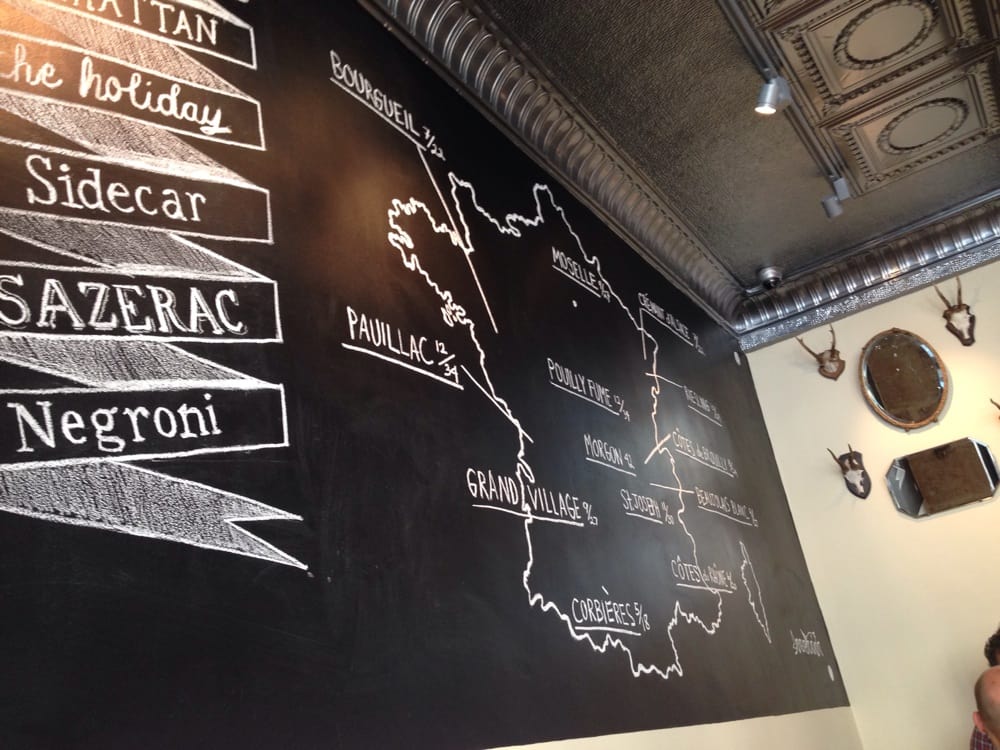 HATTAN
the holiday
Sidecar
SAZERAC
Negroni
BOURGUEIL 7/22
MOSELLE
CRÉMANT D'ALSACE
PAUILLAC 12/34
POUILLY FUME 12/34
RIESLING
MORGON 42
CÔTES de BROUILLY
GRAND VILLAGE 9/27
ST. JOSEPH
BEAUJOLAIS BLANC
CÔTES du RHÔNE
CORBIÈRES 5/18